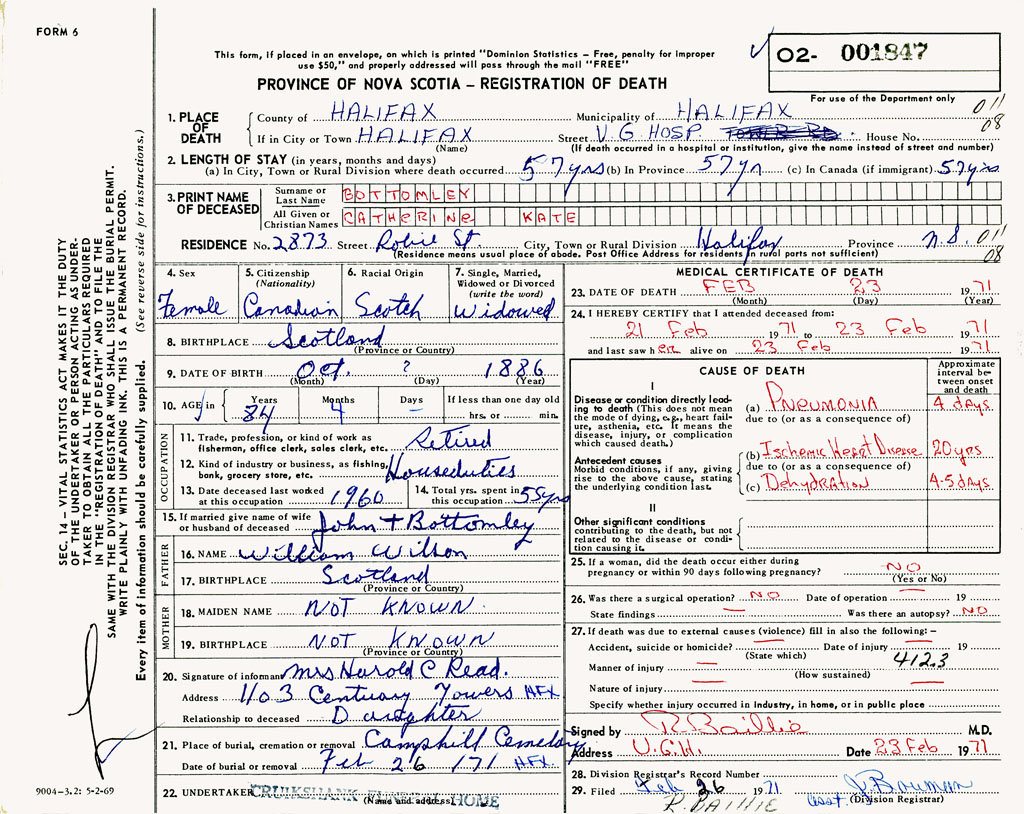 FORM 6
This form, if placed in an envelope, on which is printed "Dominion Statistics – Free, penalty for improper
use $50," and properly addressed will pass through the mail "FREE"
O2- 001847
PROVINCE OF NOVA SCOTIA – REGISTRATION OF DEATH
For use of the Department only
011
08
1. PLACE OF DEATH
County of HALIFAX Municipality of HALIFAX
If in City or Town HALIFAX Street V.G HOSP House No.
(Name) (If death occurred in a hospital or institution, give the name instead of street and number)
2. LENGTH OF STAY (in years, months and days)
(a) In City, Town or Rural Division where death occurred 57yrs (b) In Province 57yr (c) In Canada (if immigrant) 57yrs
3. PRINT NAME OF DECEASED
Surname or Last Name BOTTOMLEY
All Given or Christian Names CATHERINE KATE
RESIDENCE No. 2873 Street Robie St. City, Town or Rural Division Halifax Province N.S. 011
08
(Residence means usual place of abode. Post Office Address for residents in rural parts not sufficient)
4. Sex
Female
5. Citizenship
(Nationality)
Canadian
6. Racial Origin
Scotch
7. Single, Married,
Widowed or Divorced
(write the word)
Widowed
8. BIRTHPLACE Scotland
(Province or Country)
9. DATE OF BIRTH Oct. ? 1886
(Month) (Day) (Year)
10. AGE in
Years Months Days If less than one day old
84 4 – hrs. or min.
OCCUPATION
11. Trade, profession, or kind of work as
fisherman, office clerk, sales clerk, etc. Retired
12. Kind of industry or business, as fishing,
bank, grocery store, etc. Houseduties
13. Date deceased last worked
at this occupation 1960
14. Total yrs. spent in
this occupation 55yrs
15. If married give name of wife
or husband of deceased John T Bottomley
FATHER
16. NAME William Wilson
17. BIRTHPLACE Scotland
(Province or Country)
MOTHER
18. MAIDEN NAME NOT KNOWN
19. BIRTHPLACE NOT KNOWN
(Province or Country)
20. Signature of informant Mrs Harold C Read.
Address 1103 Centuary Towers HFX
Relationship to deceased Daughter
21. Place of burial, cremation or removal Camphill Cemetary
Date of burial or removal Feb 26 /71 HFX.
22. UNDERTAKER CRUIKSHANK FUNERAL HOME
(Name and address)
MEDICAL CERTIFICATE OF DEATH
23. DATE OF DEATH FEB 23 1971
(Month) (Day) (Year)
24. I HEREBY CERTIFY that I attended deceased from:
21 Feb 1971 to 23 Feb 1971
and last saw her alive on 23 Feb 1971
CAUSE OF DEATH
Approximate
interval be-
tween onset
and death
I
Disease or condition directly lead-
ing to death (This does not
the mode of dying, e.g., heart fail-
ure, asthenia, etc. It means the
disease, injury, or complication
which caused death.)
(a) PNEUMONIA 4 days
due to (or as a consequence of)
Antecedent causes
Morbid conditions, if any, giving
rise to the above cause, stating
the underlying condition last.
(b) Ischemic Heart Disease 20 yrs
due to (or as a consequence of)
(c) Dehydration 4-5 days
II
Other significant conditions
contributing to the death, but not
related to the disease or condi-
tion causing it.
25. If a woman, did the death occur either during
pregnancy or within 90 days following pregnancy? NO
(Yes or No)
26. Was there a surgical operation? NO Date of operation — 19
State findings — Was there an autopsy? NO
27. If death was due to external causes (violence) fill in also the following: –
Accident, suicide or homicide? — Date of injury — 19
(State which) 412.3
Manner of injury —
(How sustained)
Nature of injury —
Specify whether injury occurred in industry, in home, or in public place
Signed by R Baillie M.D.
Address V.G.H. Date 23 Feb 1971
28. Division Registrar's Record Number
29. Filed Feb 26 1971 J Bowman
R. BAILLIE Asst (Division Registrar)
SEC. 14 – VITAL STATISTICS ACT MAKES IT THE DUTY
OF THE UNDERTAKER OR PERSON ACTING AS UNDER-
TAKER TO OBTAIN ALL THE PARTICULARS REQUIRED
IN THE "REGISTRATION OF DEATH" AND TO FILE THE
SAME WITH THE DIVISION REGISTRAR WHO SHALL ISSUE THE BURIAL PERMIT.
WRITE PLAINLY WITH UNFADING INK. THIS IS A PERMANENT RECORD.
Every item of information should be carefully supplied. (See reverse side for instructions.)
9004–3.2: 5-2-69